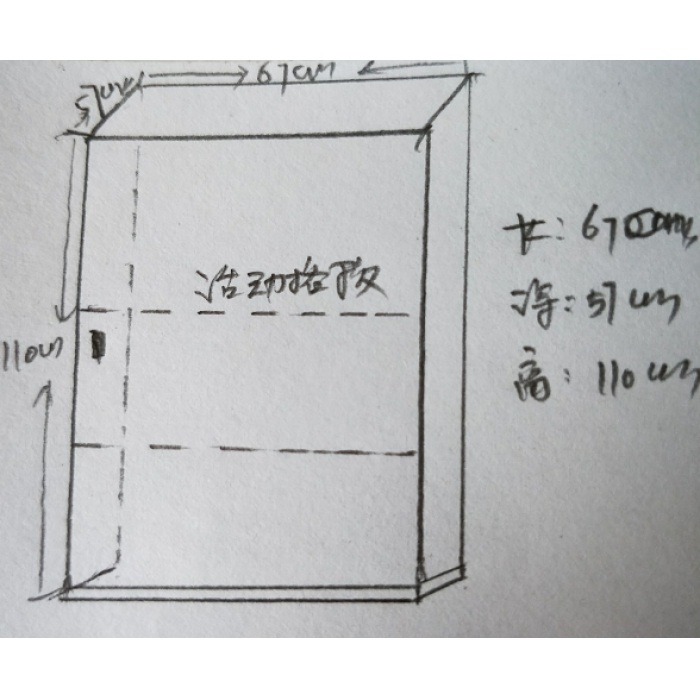 67cm
57cm
活动格板
110cm
长: 67cm
深: 57cm
高: 110cm